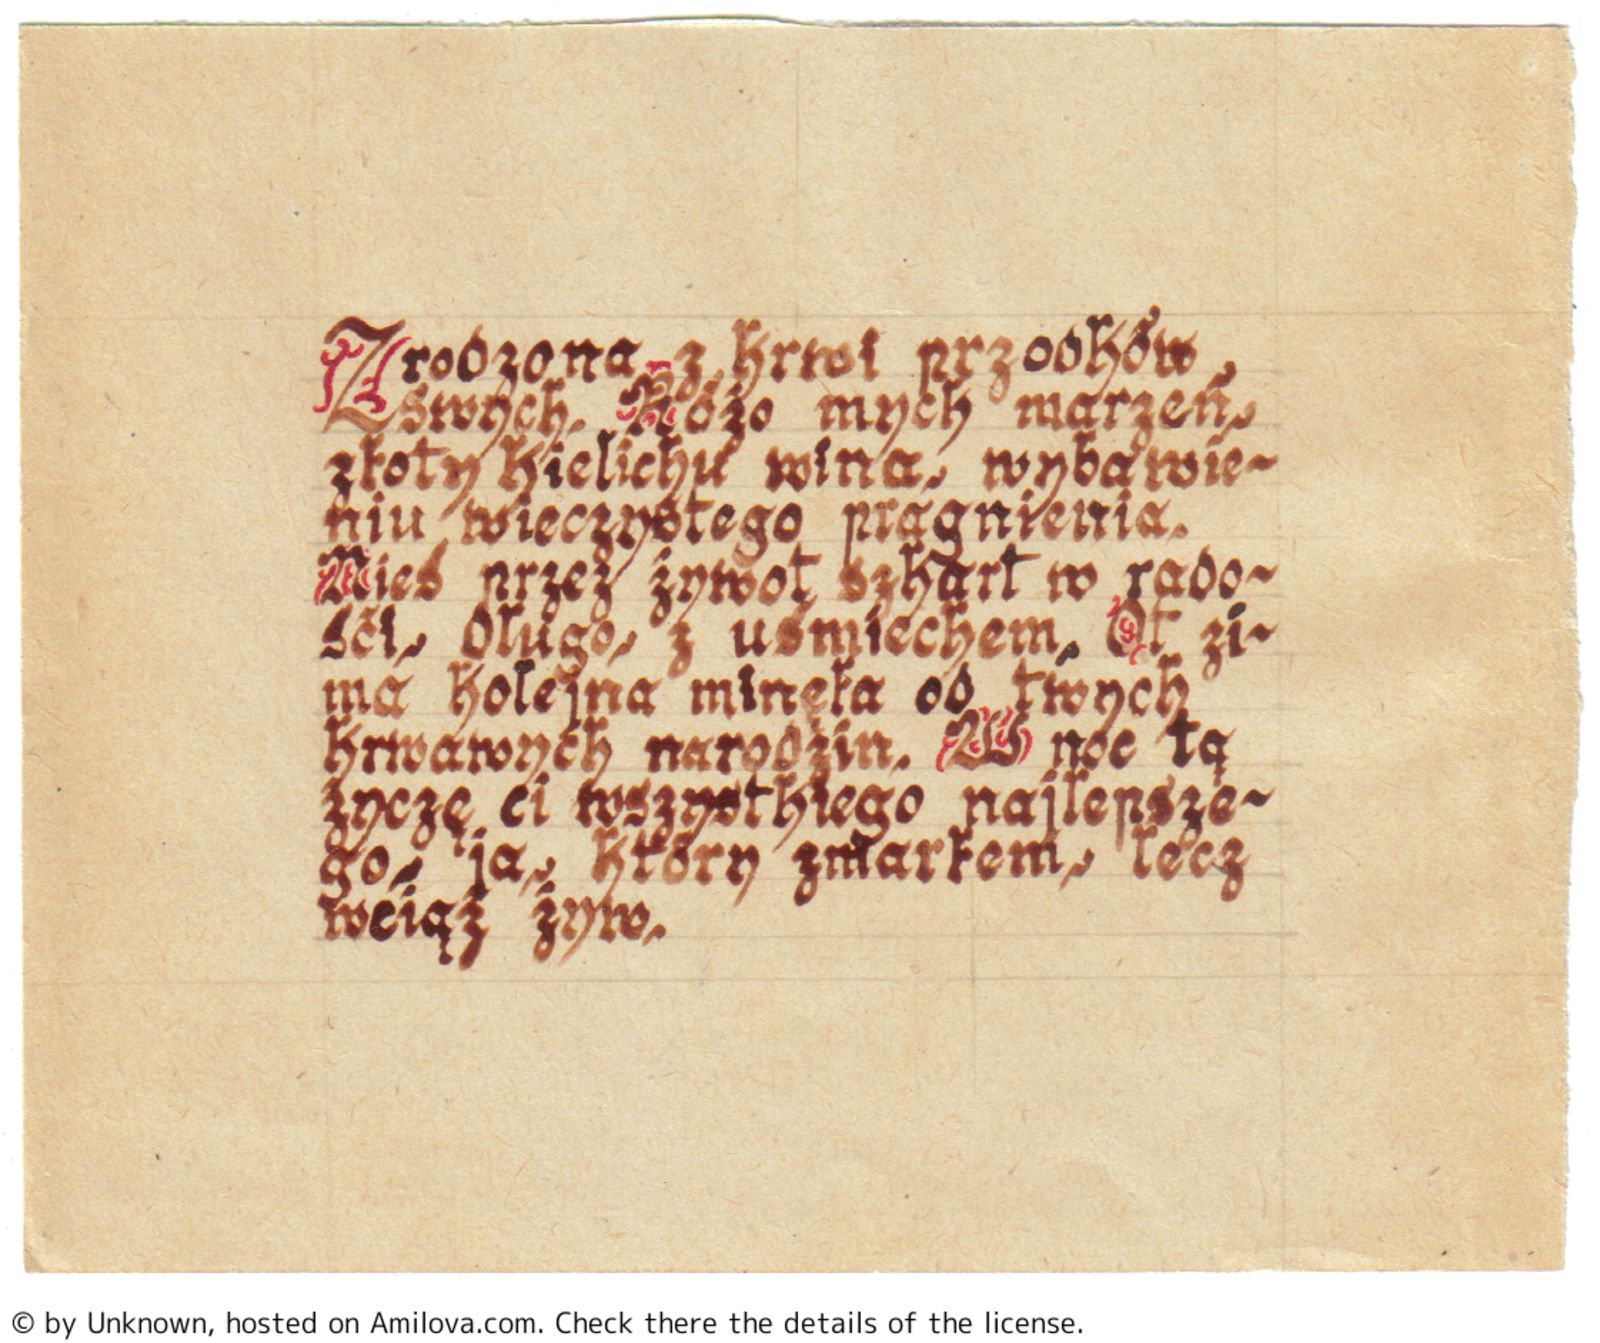 Zrodzona z krwi przodków
swych. Różo mych marzeń,
złoty kielichu wina, wybawie~
niu wieczystego pragnienia.
Nieś przez żywot szkarł w rado~
ści, długo, z uśmiechem. Ot zi~
ma kolejna minęła od twych
krwawych narodzin. W noc tą
życzę ci wszystkiego najlepsze~
go, ja, który zmarłem, lecz
wciąż żyw.
© by Unknown, hosted on Amilova.com. Check there the details of the license.